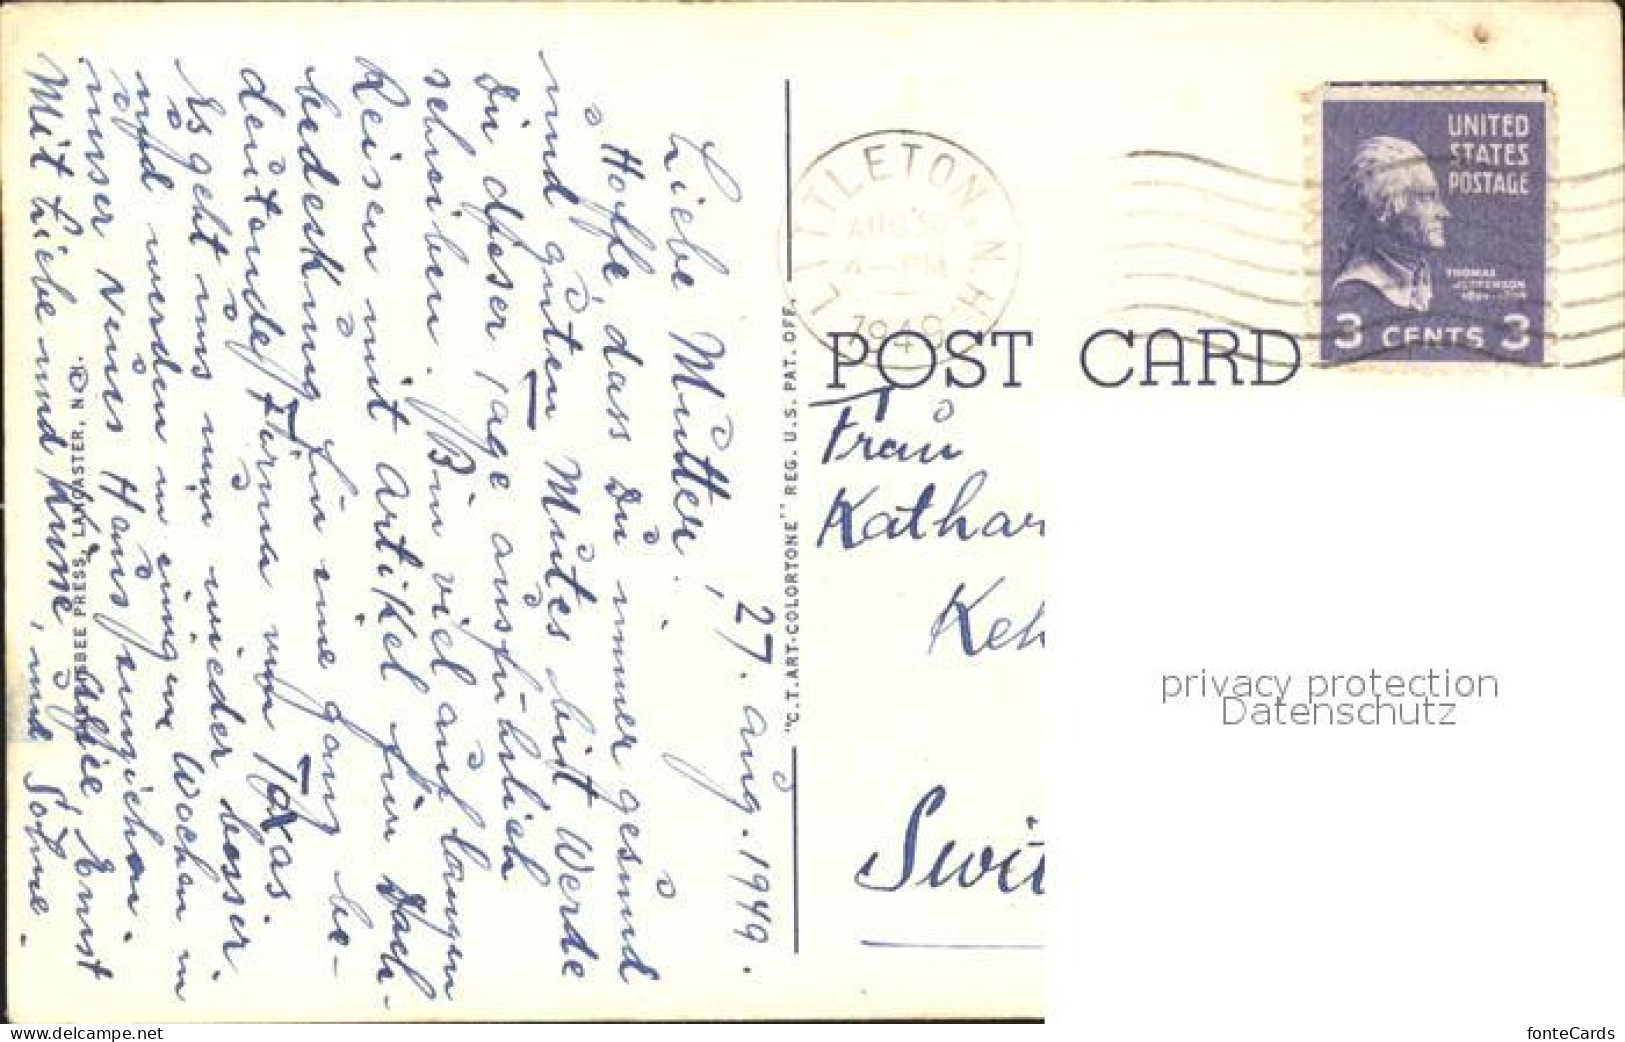 27. Aug. 1949.
Liebe Mutter.
Hoffe, dass Du immer gesund
und guten Mutes bist Werde
Dir dieser Tage ausführlich
schreiben. Bin viel auf langen
Reisen mit Artikel für Dach-
bedeckung für eine ganz be-
deutende Firma von Texas.
Es geht uns nun wieder besser.
und werden in einigen Wochen in
unser neues Haus einziehen.
Mit Liebe und Küsse, und Söhne.
Ernst
"C.T. ART-COLORTONE" REG. U.S. PAT. OFF.
BEE PRESS, LANCASTER, N.H.
LITTLETON, N.H.
AUG 30
4-PM
1949
POST CARD
UNITED
STATES
POSTAGE
THOMAS
JEFFERSON
3 CENTS 3
Frau
Kathar
Keh
Swit
privacy protection
Datenschutz
https://www.ansichtskarten-center.de
fonteCards